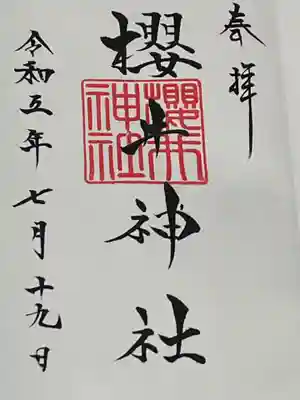 奉拝
櫻井神社
櫻井神社
令和五年七月十九日